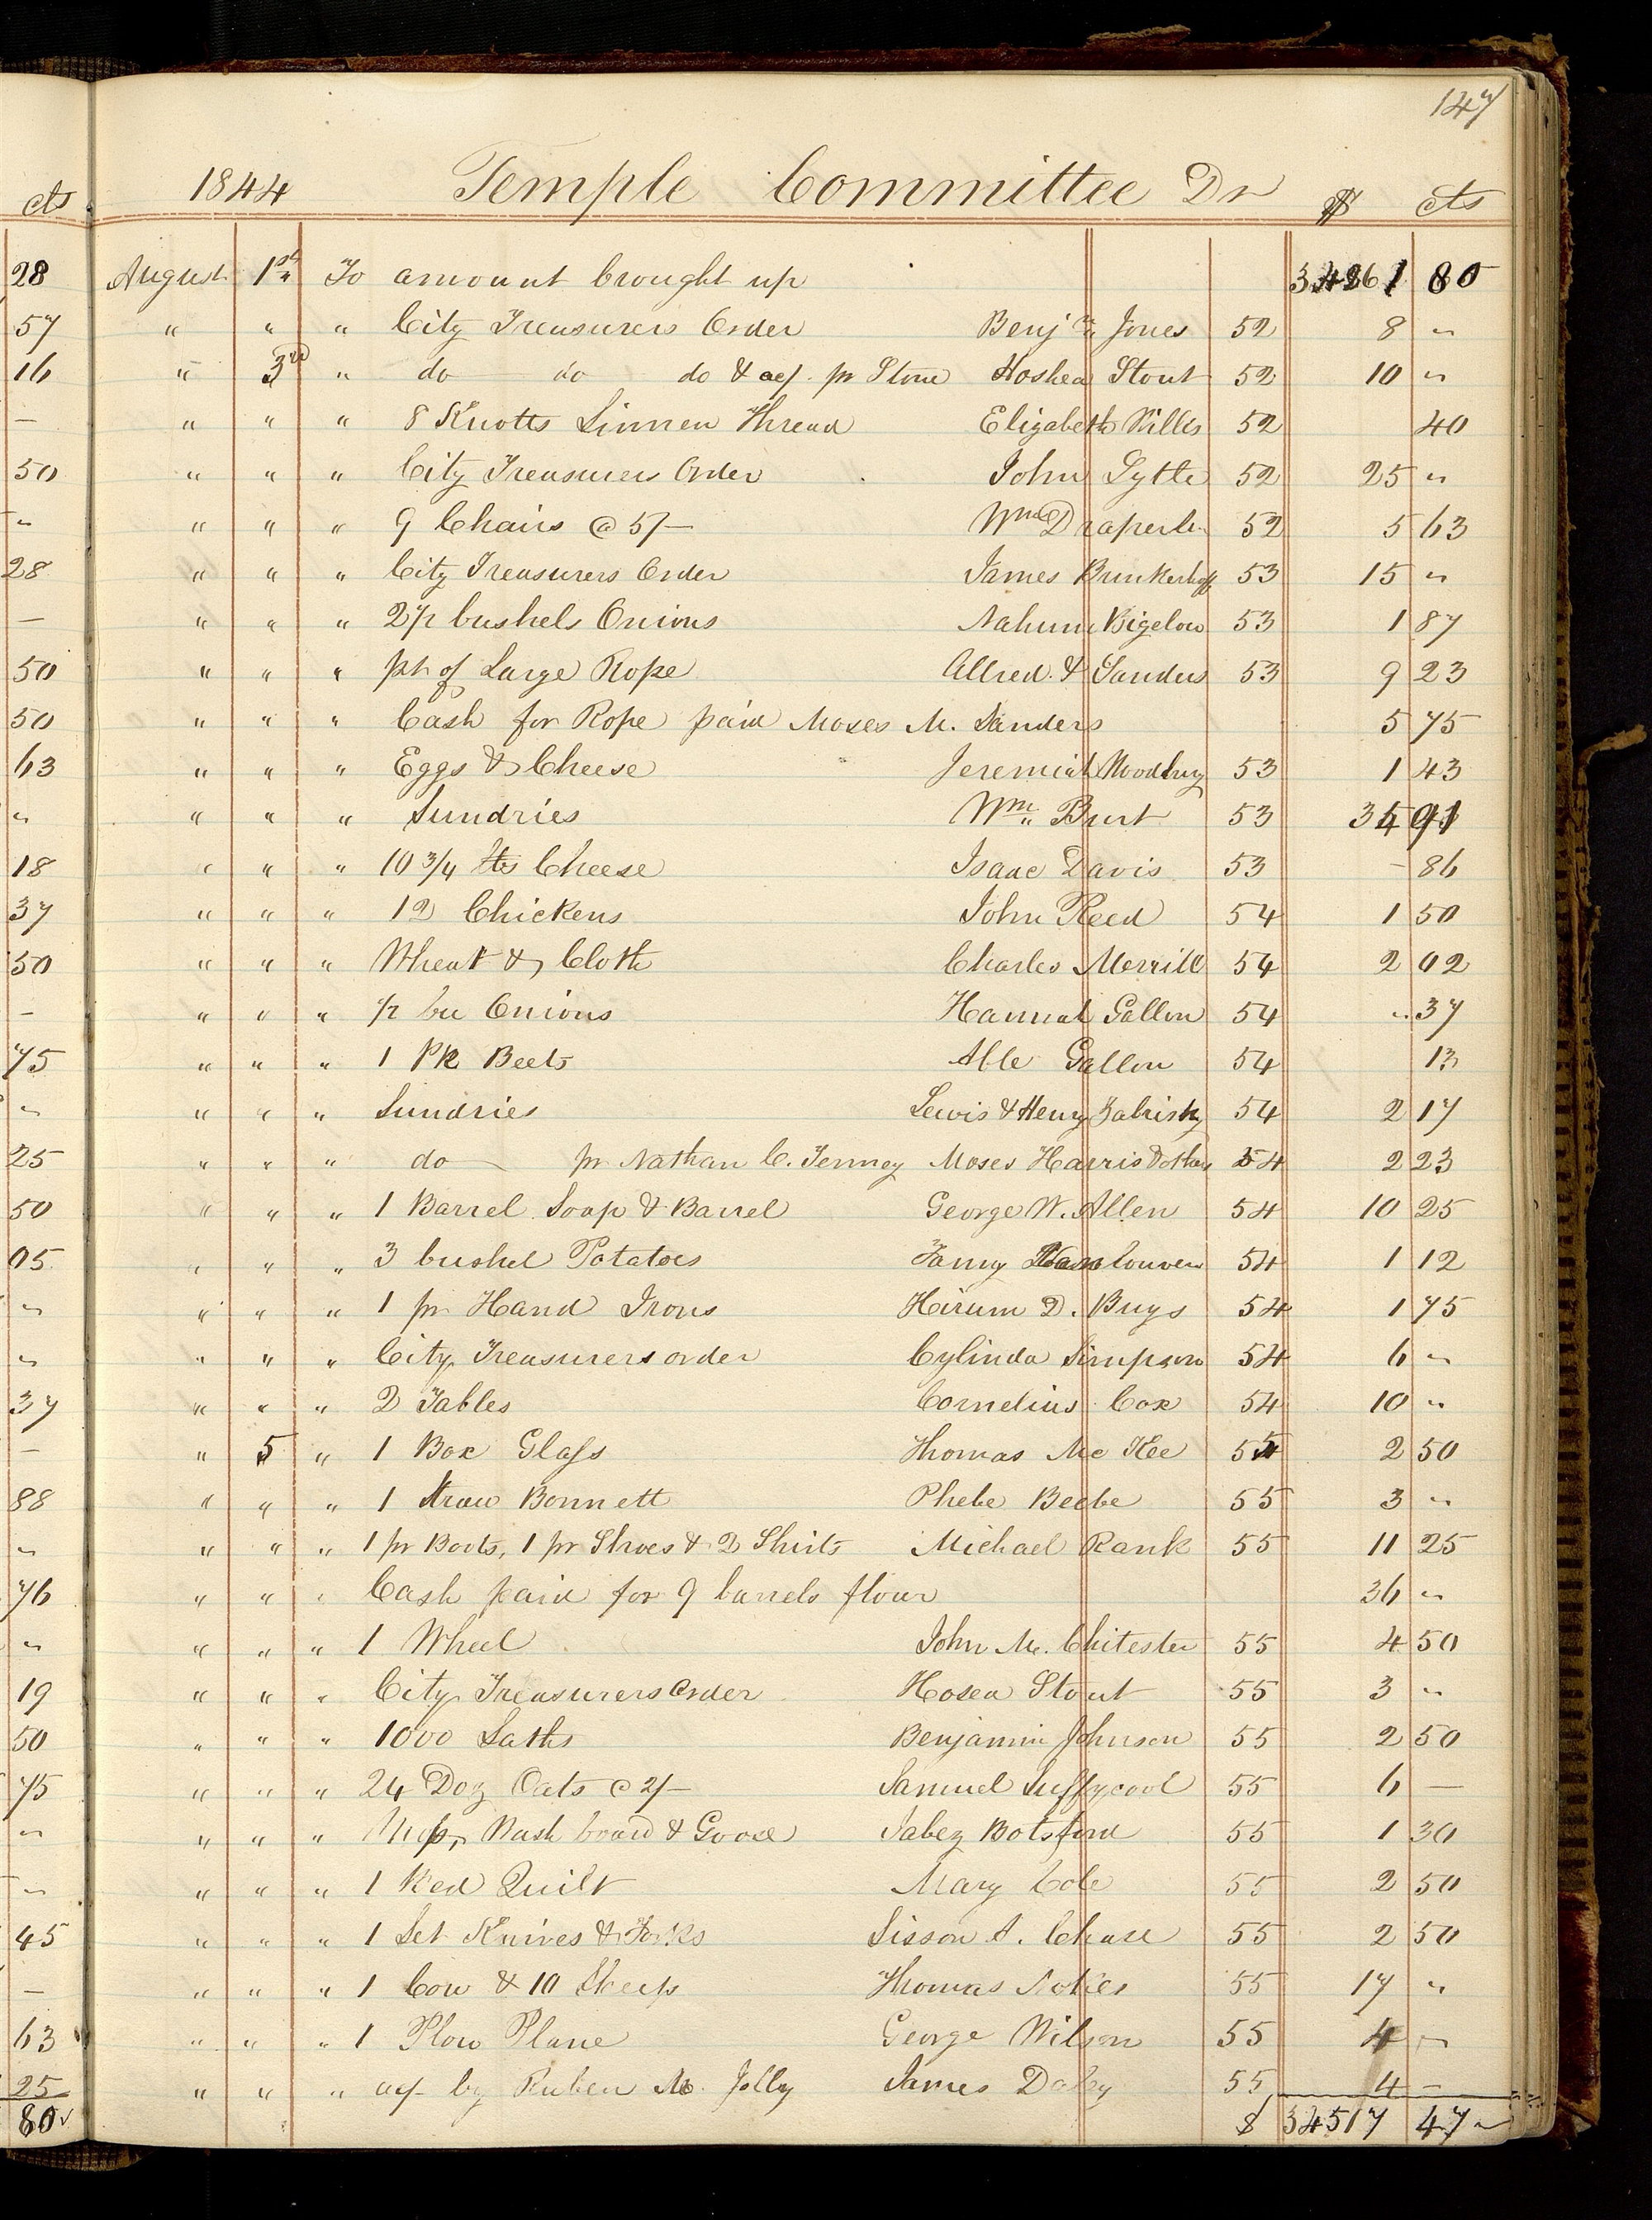 147
cts 1844 Temple Committee Dr $ cts
28 August 1st To amount brought up 34261 80
57 " " " City Treasurers Order Benjn Jones 52 8 "
16 " 3rd " do do do & acf. pr Stone Hoshea Stout 52 10 "
— " " " 8 Knotts Linnen Thread Elizabeth Willis 52 40
50 " " " City Treasurers Order John Lytle 52 25 "
" " " " 9 Chairs @ 5/— Wm Draper 52 5 63
28 " " " City Treasurers Order James Brinkerhoff 53 15 "
— " " " 2 1/2 bushels Onions Nahum Bigelow 53 1 87
50 " " " pt of Large Rope Allred & Sanders 53 9 23
50 " " " Cash for Rope paid Moses M. Sanders 5 75
63 " " " Eggs & Cheese Jeremiah Woodbury 53 1 43
" " " " Sundries Wm Burt 53 34 91
18 " " " 10 3/4 lbs Cheese Isaac Davis 53 – 86
37 " " " 12 Chickens John Reed 54 1 50
50 " " " Wheat & Cloth Charles Merrill 54 2 02
— " " " 1/2 bu Onions Hannah Gallon 54 " 37
75 " " " 1 Pk Beets Able Gallon 54 13
" " " " Sundries Lewis & Henry Zabrisky 54 2 17
25 " " " do pr Nathan C. Tenney Moses Harris & others 54 2 23
50 " " " 1 Barrel Soap & Barrel George W. Allen 54 10 25
05 " " " 3 bushel Potatoes Fanny Van Couvers 54 1 12
" " " " 1 pr Hand Irons Hirum D. Buys 54 1 75
" " " " City Treasurers order Cylinda Simpson 54 6 "
37 " " " 2 Tables Cornelius Cox 54 10 "
— " 5 " 1 Box Glass Thomas Mc Kee 55 2 50
88 " " " 1 Straw Bonnett Phebe Beebe 55 3 "
" " " " 1 pr Boots, 1 pr Shoes & 2 Shirts Michael Rank 55 11 25
76 " " " Cash paid for 9 barrels flour 36 "
" " " " 1 Wheel John M. Chitester 55 4 50
19 " " " City Treasurers order Hosea Stout 55 3 "
50 " " " 1000 Laths Benjamin Johnson 55 2 50
75 " " " 24 Doz Oats @ 2/— Samuel Suffycool 55 6 —
" " " " Mop, Wash board & Goose Jabez Botsford 55 1 30
" " " " 1 Bed Quilt Mary Cole 55 2 50
45 " " " 1 Set Knives & Forks Sisson A. Chase 55 2 50
— " " " 1 Cow & 10 Sheep Thomas 55 17 "
63 " " " 1 Plow Plane George Wilson 55 4 "
25 " " " acf by Ruben M. Jolley James Daley 55 4 —
80 $ 34517 47